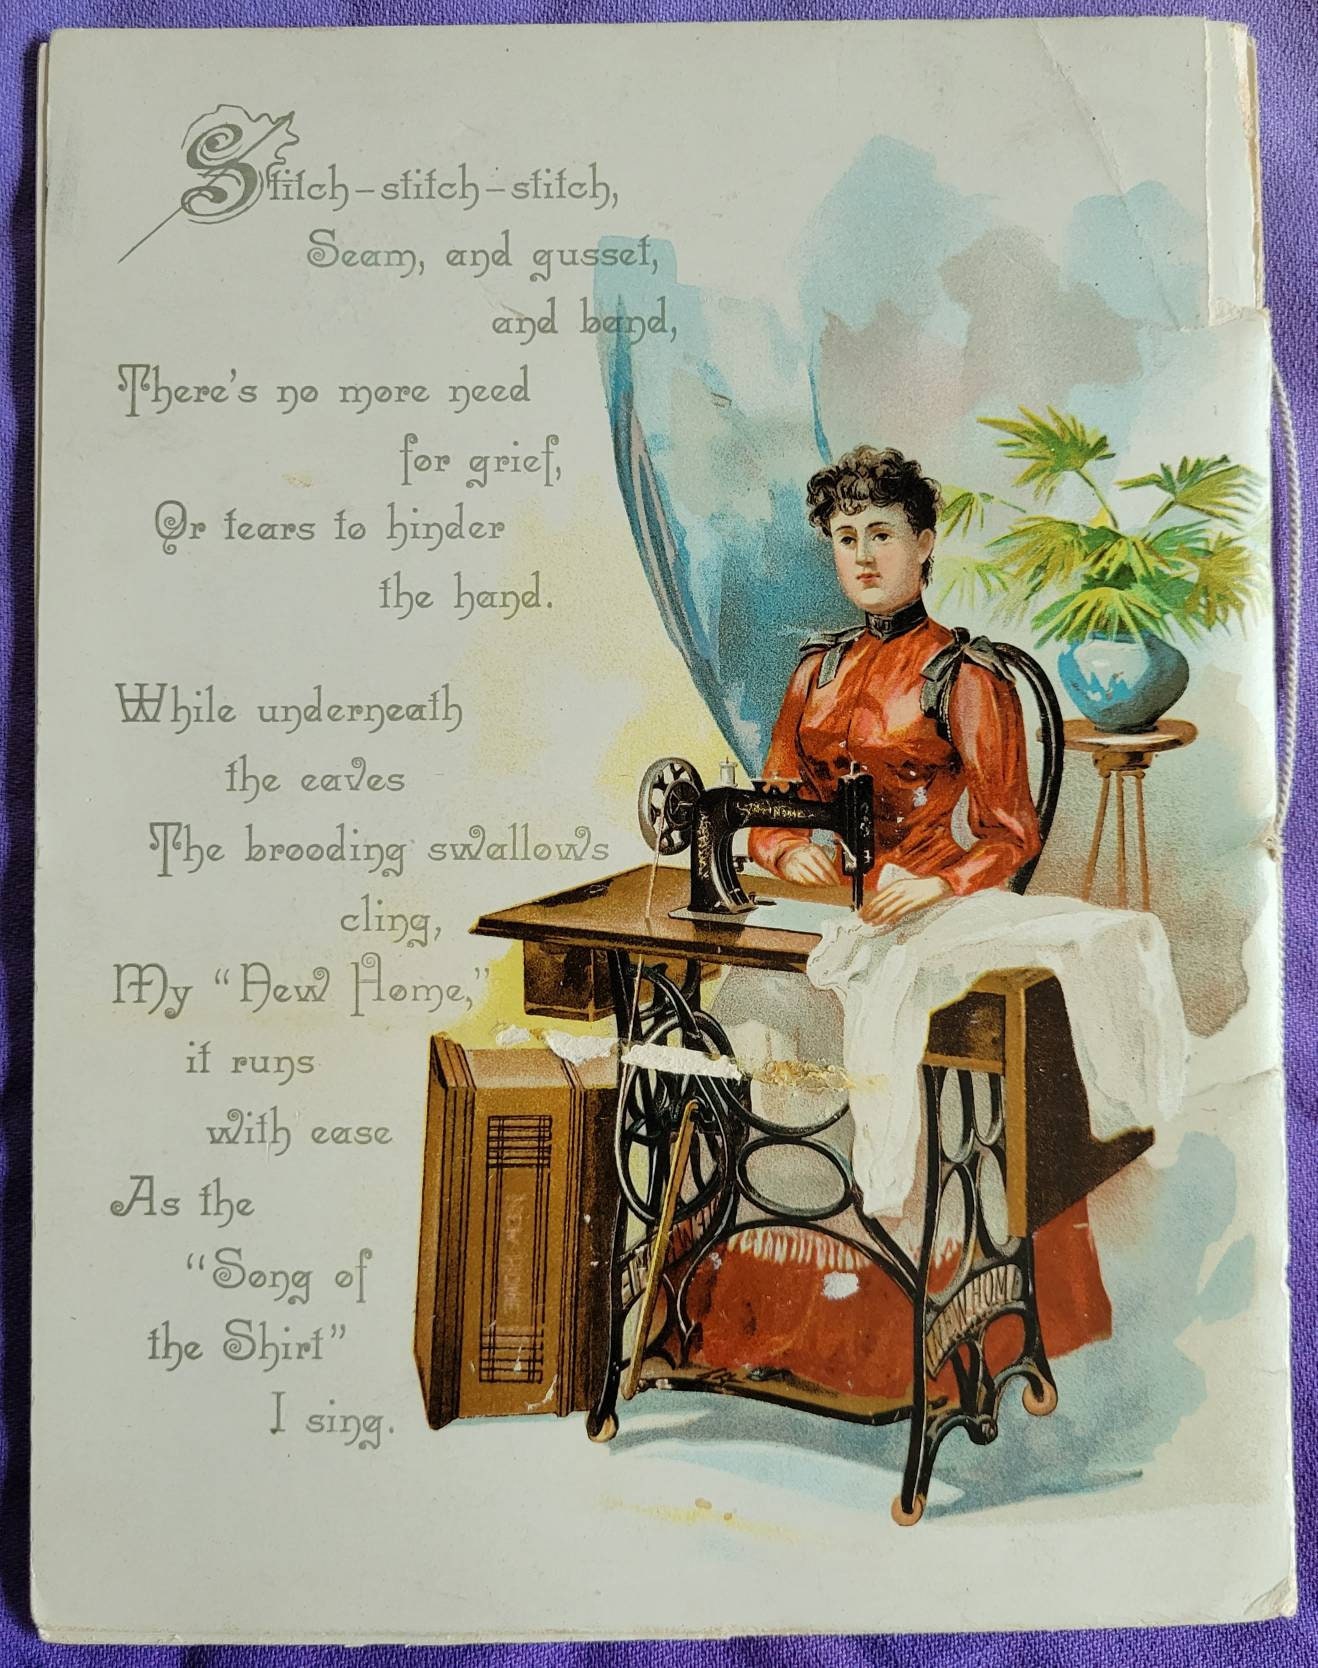 Stitch-stitch-stitch,
Seam, and gusset,
and band,
There's no more need
for grief,
Or tears to hinder
the hand.
While underneath
the eaves
The brooding swallows
cling,
My “New Home,”
it runs
with ease
As the
“Song of
the Shirt”
I sing.
NEW HOME
NEW HOME